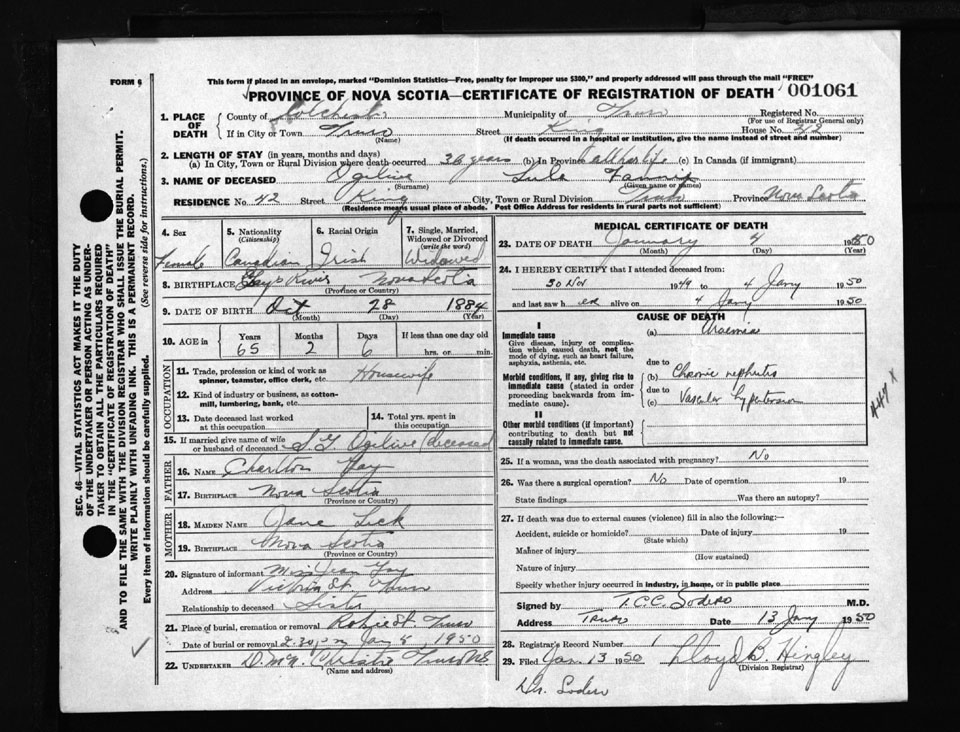 FORM 6
This form if placed in an envelope, marked "Dominion Statistics—Free, penalty for improper use $300," and properly addressed will pass through the mail "FREE"
PROVINCE OF NOVA SCOTIA—CERTIFICATE OF REGISTRATION OF DEATH 001061
SEC. 46—VITAL STATISTICS ACT MAKES IT THE DUTY
OF THE UNDERTAKER OR PERSON ACTING AS UNDER-
TAKER TO OBTAIN ALL THE PARTICULARS REQUIRED
IN THE "CERTIFICATE OF REGISTRATION OF DEATH"
AND TO FILE THE SAME WITH THE DIVISION REGISTRAR WHO SHALL ISSUE THE BURIAL PERMIT.
WRITE PLAINLY WITH UNFADING INK. THIS IS A PERMANENT RECORD.
Every item of information should be carefully supplied. (See reverse side for instructions.)
1. PLACE OF DEATH
County of Colchester Municipality of Truro Registered No.
(For use of Registrar General only)
If in City or Town Truro Street King House No. 42
(Name) (If death occurred in a hospital or institution, give the name instead of street and number)
2. LENGTH OF STAY (in years, months and days)
(a) In City, Town or Rural Division where death occurred 36 years (b) In Province all her life (c) In Canada (if immigrant)
3. NAME OF DECEASED Ogilvie Lula
(Surname) (Given name or names)
RESIDENCE No. 42 Street King City, Town or Rural Division Truro Province Nova Scotia
(Residence means usual place of abode. Post Office Address for residents in rural parts not sufficient)
4. Sex Female
5. Nationality (Citizenship) Canadian
6. Racial Origin Irish
7. Single, Married, Widowed or Divorced (write the word) Widowed
8. BIRTHPLACE Gay's River Nova Scotia
(Province or Country)
9. DATE OF BIRTH Oct 28 1884
(Month) (Day) (Year)
10. AGE in Years Months Days If less than one day old
65 2 6 hrs. or min.
OCCUPATION
11. Trade, profession or kind of work as spinner, teamster, office clerk, etc. Housewife
12. Kind of industry or business, as cotton-mill, lumbering, bank, etc.
13. Date deceased last worked at this occupation
14. Total yrs. spent in this occupation
15. If married give name of wife or husband of deceased Ogilvie deceased
FATHER
16. NAME Charlton Gay
17. BIRTHPLACE Nova Scotia
(Province or Country)
MOTHER
18. MAIDEN NAME Jane
19. BIRTHPLACE Nova Scotia
(Province or Country)
20. Signature of informant Miss Jean Gay
Address Victoria St. Truro
Relationship to deceased Sister
21. Place of burial, cremation or removal Robie St. Truro
Date of burial or removal 2.30 pm Jan 1950
22. UNDERTAKER Christie Truro N.S.
(Name and address)
MEDICAL CERTIFICATE OF DEATH
23. DATE OF DEATH January 4 1950
(Month) (Day) (Year)
24. I HEREBY CERTIFY that I attended deceased from:
30 Nov 1949 to 4 Jany 1950
and last saw her alive on 4 Jany 1950
CAUSE OF DEATH
I
Immediate cause
Give disease, injury or complication which caused death, not the mode of dying, such as heart failure, asphyxia, asthenia, etc.
(a) Uraemia
due to
Morbid conditions, if any, giving rise to immediate cause (stated in order proceeding backwards from immediate cause).
(b) Chronic nephritis
due to
(c) Vascular hypertension
II
Other morbid conditions (if important) contributing to death but not causally related to immediate cause.
25. If a woman, was the death associated with pregnancy? No
26. Was there a surgical operation? No Date of operation 19
State findings Was there an autopsy?
27. If death was due to external causes (violence) fill in also the following:—
Accident, suicide or homicide? Date of injury 19
(State which)
Manner of injury
(How sustained)
Nature of injury
Specify whether injury occurred in industry, in home, or in public place
Signed by T.C.C. Sodero M.D.
Address Truro Date 13 Jany 1950
28. Registrar's Record Number 1
29. Filed Jan. 13 1950 Lloyd B. Hingley
(Division Registrar)
Dr. Sodero